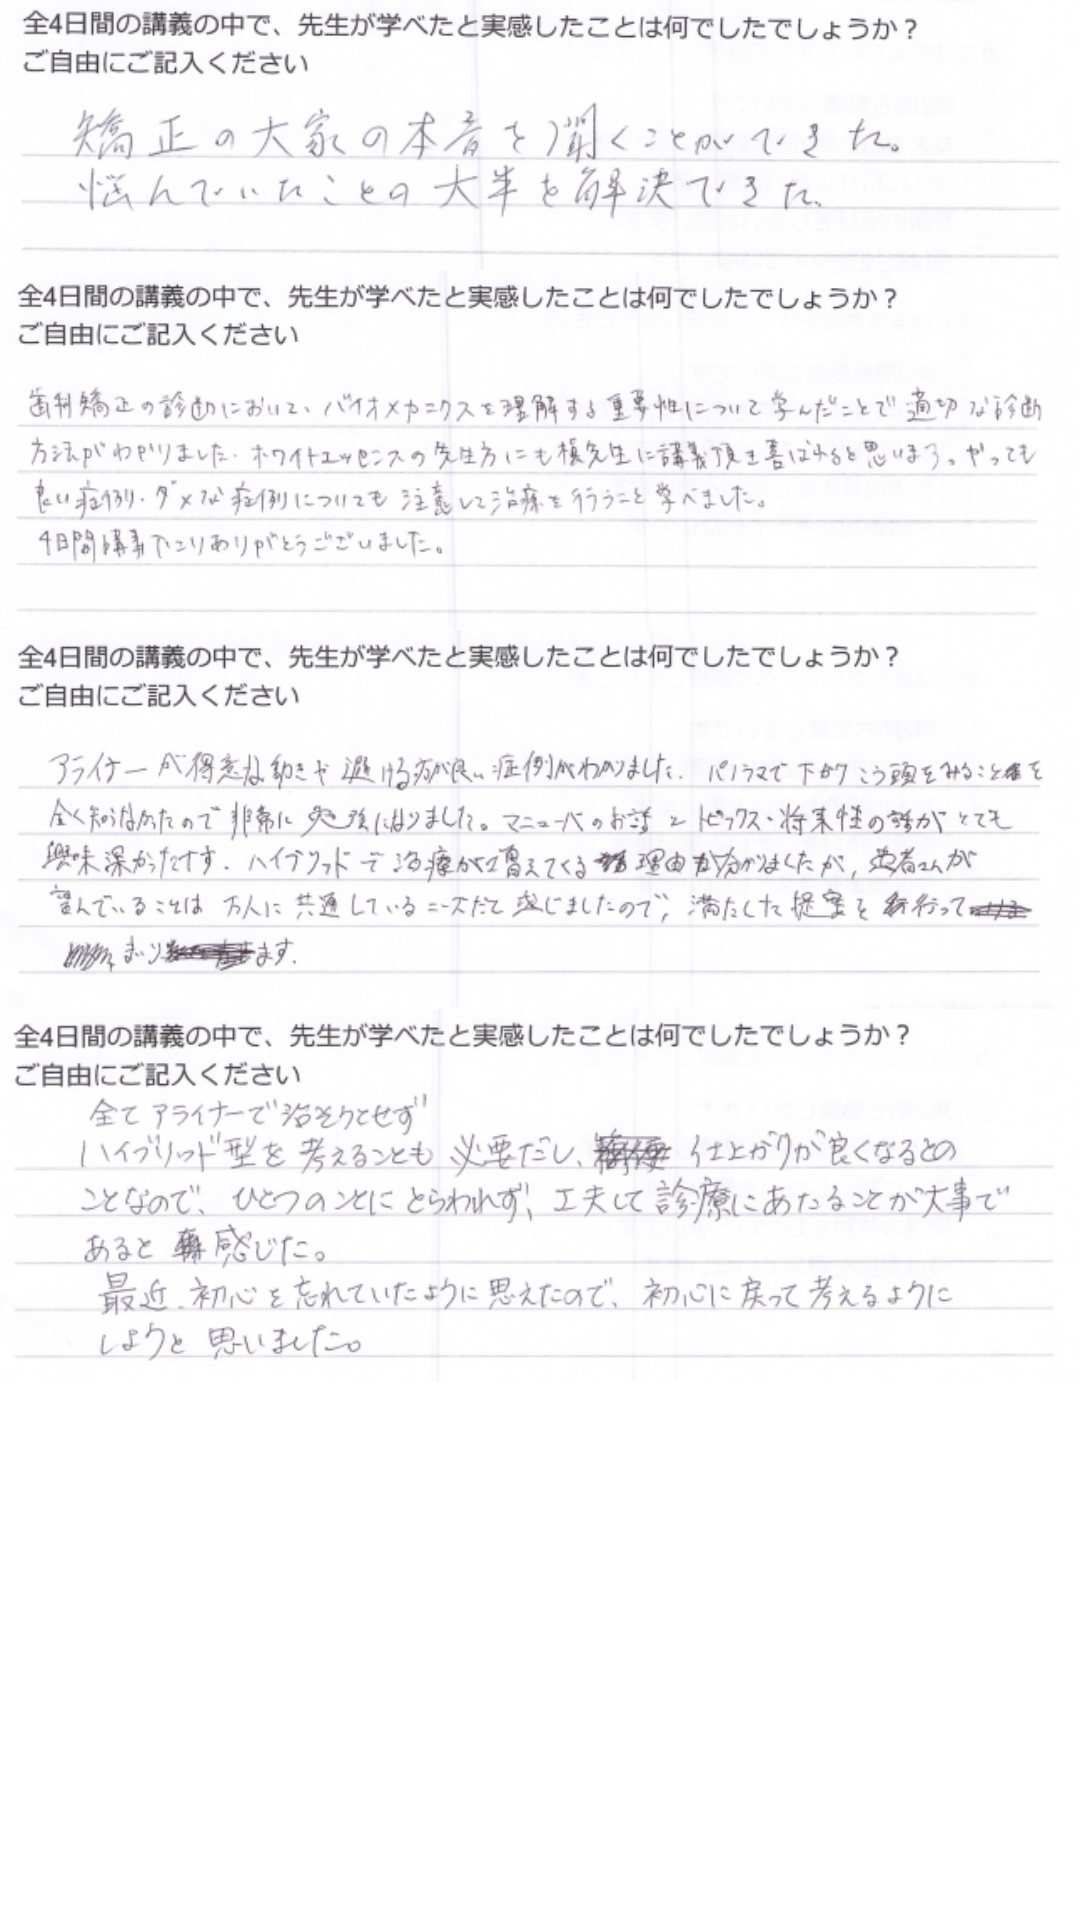 全4日間の講義の中で、先生が学べたと実感したことは何でしたでしょうか？
ご自由にご記入ください
矯正の大家の本音を聞くことができた。
悩んでいたことの大半を解決できた。
全4日間の講義の中で、先生が学べたと実感したことは何でしたでしょうか？
ご自由にご記入ください
歯科矯正の診断において、バイオメカニクスを理解する重要性について学んだことで適切な診断
方法がわかりました。ホワイトエッセンスの先生方にも槇先生に講義頂き喜ばれると思います。やっても
良い症例・ダメな症例についても注意して治療を行うこと学べました。
4日間講義下さりありがとうございました。
全4日間の講義の中で、先生が学べたと実感したことは何でしたでしょうか？
ご自由にご記入ください
アライナーが得意な動きや避ける方が良い症例がわかりました。パノラマで下がくこう頭をみることを
全く知らなかったので非常に勉強になりました。マニューバのお話とトピックス・将来性の話がとても
興味深かったです。ハイブリッドで治療が増えてくる理由が分かりましたが、患者さんが
望んでいることは万人に共通しているニーズだと感じましたので、満たした提案を行って
まいります。
全4日間の講義の中で、先生が学べたと実感したことは何でしたでしょうか？
ご自由にご記入ください
全てアライナーで治そうとせず
ハイブリッド型を考えることも必要だし、仕上がりが良くなるとの
ことなので、ひとつのことにとらわれず、工夫して診療にあたることが大事で
あると感じた。
最近、初心を忘れていたように思えたので、初心に戻って考えるように
しようと思いました。